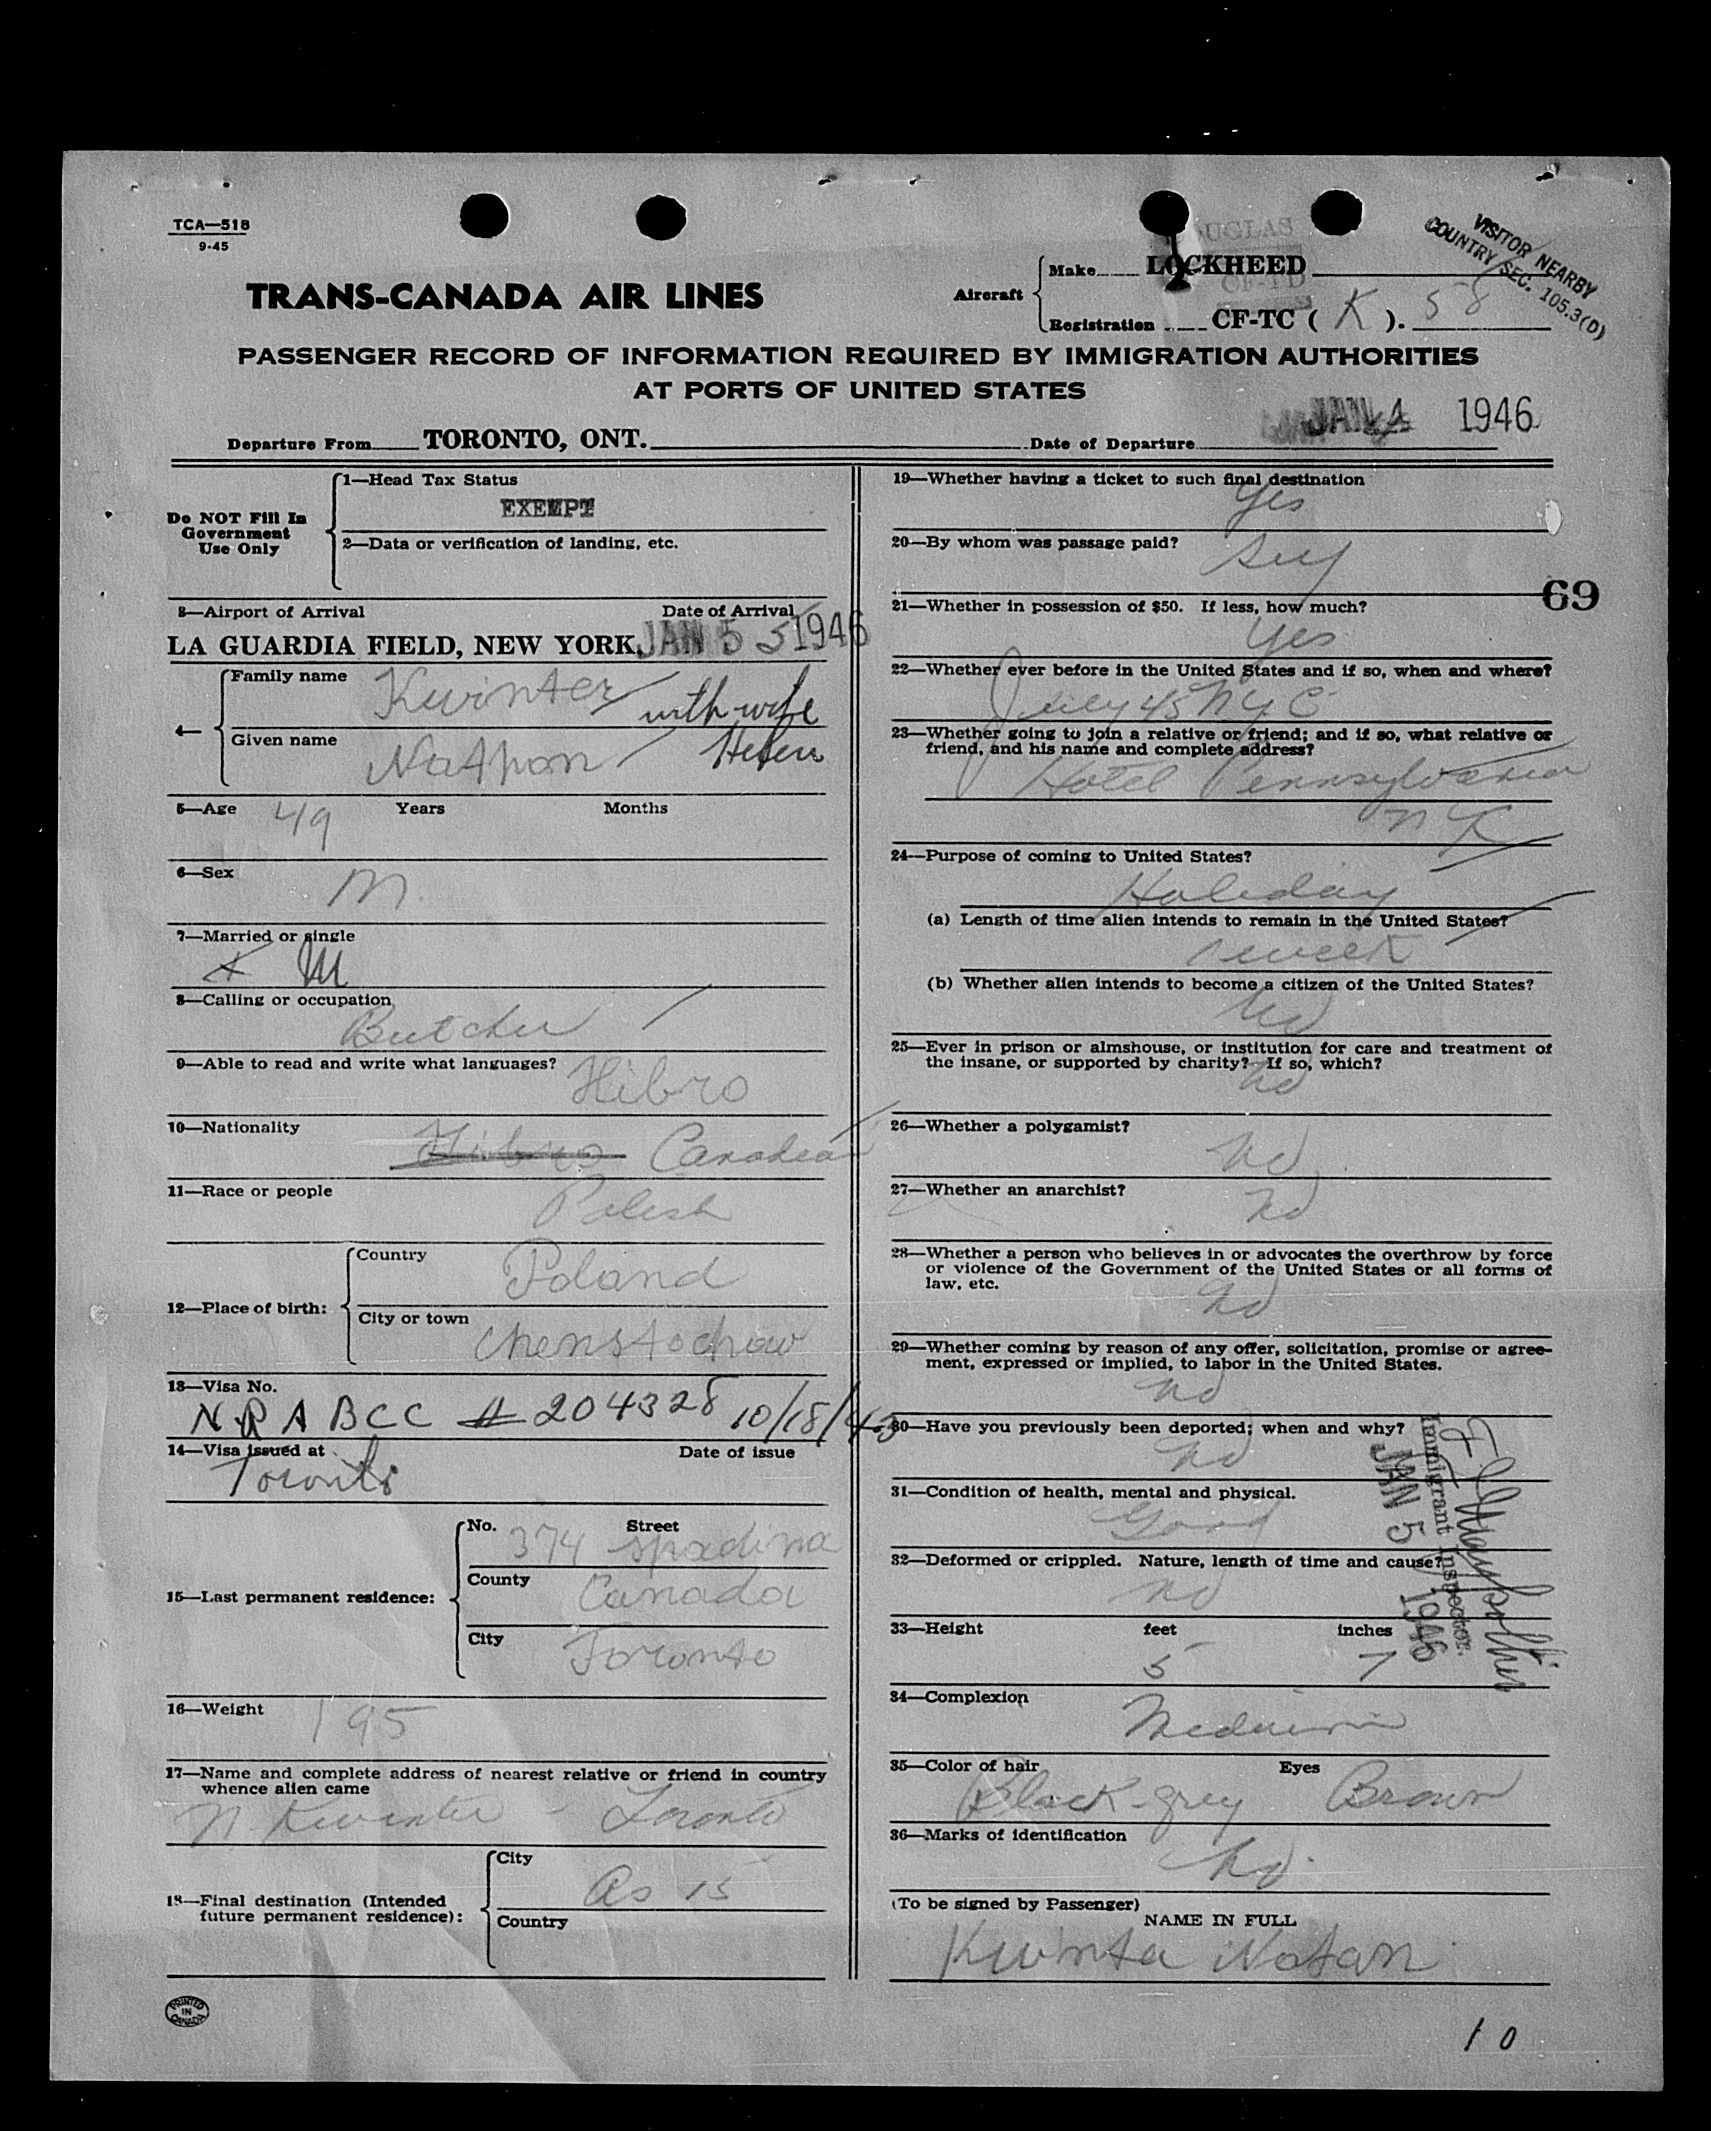 TCA—518
9-45
DOUGLAS
VISITOR NEARBY
COUNTRY SEC. 105.3(D)
TRANS-CANADA AIR LINES
Aircraft
Make LOCKHEED
CF-TD
Registration CF-TC ( K ). 58
PASSENGER RECORD OF INFORMATION REQUIRED BY IMMIGRATION AUTHORITIES
AT PORTS OF UNITED STATES
Departure From TORONTO, ONT. Date of Departure JAN 4 1946
Do NOT Fill In
Government
Use Only
1—Head Tax Status
EXEMPT
2—Data or verification of landing, etc.
3—Airport of Arrival Date of Arrival
LA GUARDIA FIELD, NEW YORK, JAN 5 5 1946
4—
Family name Kwinter with wife
Given name Nathan Helen
5—Age 49 Years Months
6—Sex M.
7—Married or single
X M
8—Calling or occupation
Butcher
9—Able to read and write what languages? Hibro
10—Nationality Hibro Canadian
11—Race or people Polish
12—Place of birth:
Country Poland
City or town Chenstochow
13—Visa No.
N R A B C C # 204328 10/18/43
14—Visa issued at Date of issue
Toronto
15—Last permanent residence:
No. 374 Street Spadina
County Canada
City Toronto
16—Weight 195
17—Name and complete address of nearest relative or friend in country
whence alien came
N. Kwinter - Toronto
18—Final destination (Intended
future permanent residence):
City As 15
Country
PRINTED
IN
CANADA
19—Whether having a ticket to such final destination
Yes
20—By whom was passage paid?
69
21—Whether in possession of $50. If less, how much?
Yes
22—Whether ever before in the United States and if so, when and where?
July 45 N Y C
23—Whether going to join a relative or friend; and if so, what relative or
friend, and his name and complete address?
Hotel Pennsylvania
N Y
24—Purpose of coming to United States?
Holiday
(a) Length of time alien intends to remain in the United States?
1 week
(b) Whether alien intends to become a citizen of the United States?
No
25—Ever in prison or almshouse, or institution for care and treatment of
the insane, or supported by charity? If so, which?
No
26—Whether a polygamist?
No
27—Whether an anarchist?
No
28—Whether a person who believes in or advocates the overthrow by force
or violence of the Government of the United States or all forms of
law, etc.
No
29—Whether coming by reason of any offer, solicitation, promise or agree-
ment, expressed or implied, to labor in the United States.
No
30—Have you previously been deported; when and why?
No
31—Condition of health, mental and physical.
Good
32—Deformed or crippled. Nature, length of time and cause?
No
Immigrant Inspector.
JAN 5 1946
33—Height feet inches
5 7
34—Complexion
Medium
35—Color of hair Eyes
Black-grey Brown
36—Marks of identification
No.
(To be signed by Passenger)
NAME IN FULL
Kwinta Natan
10